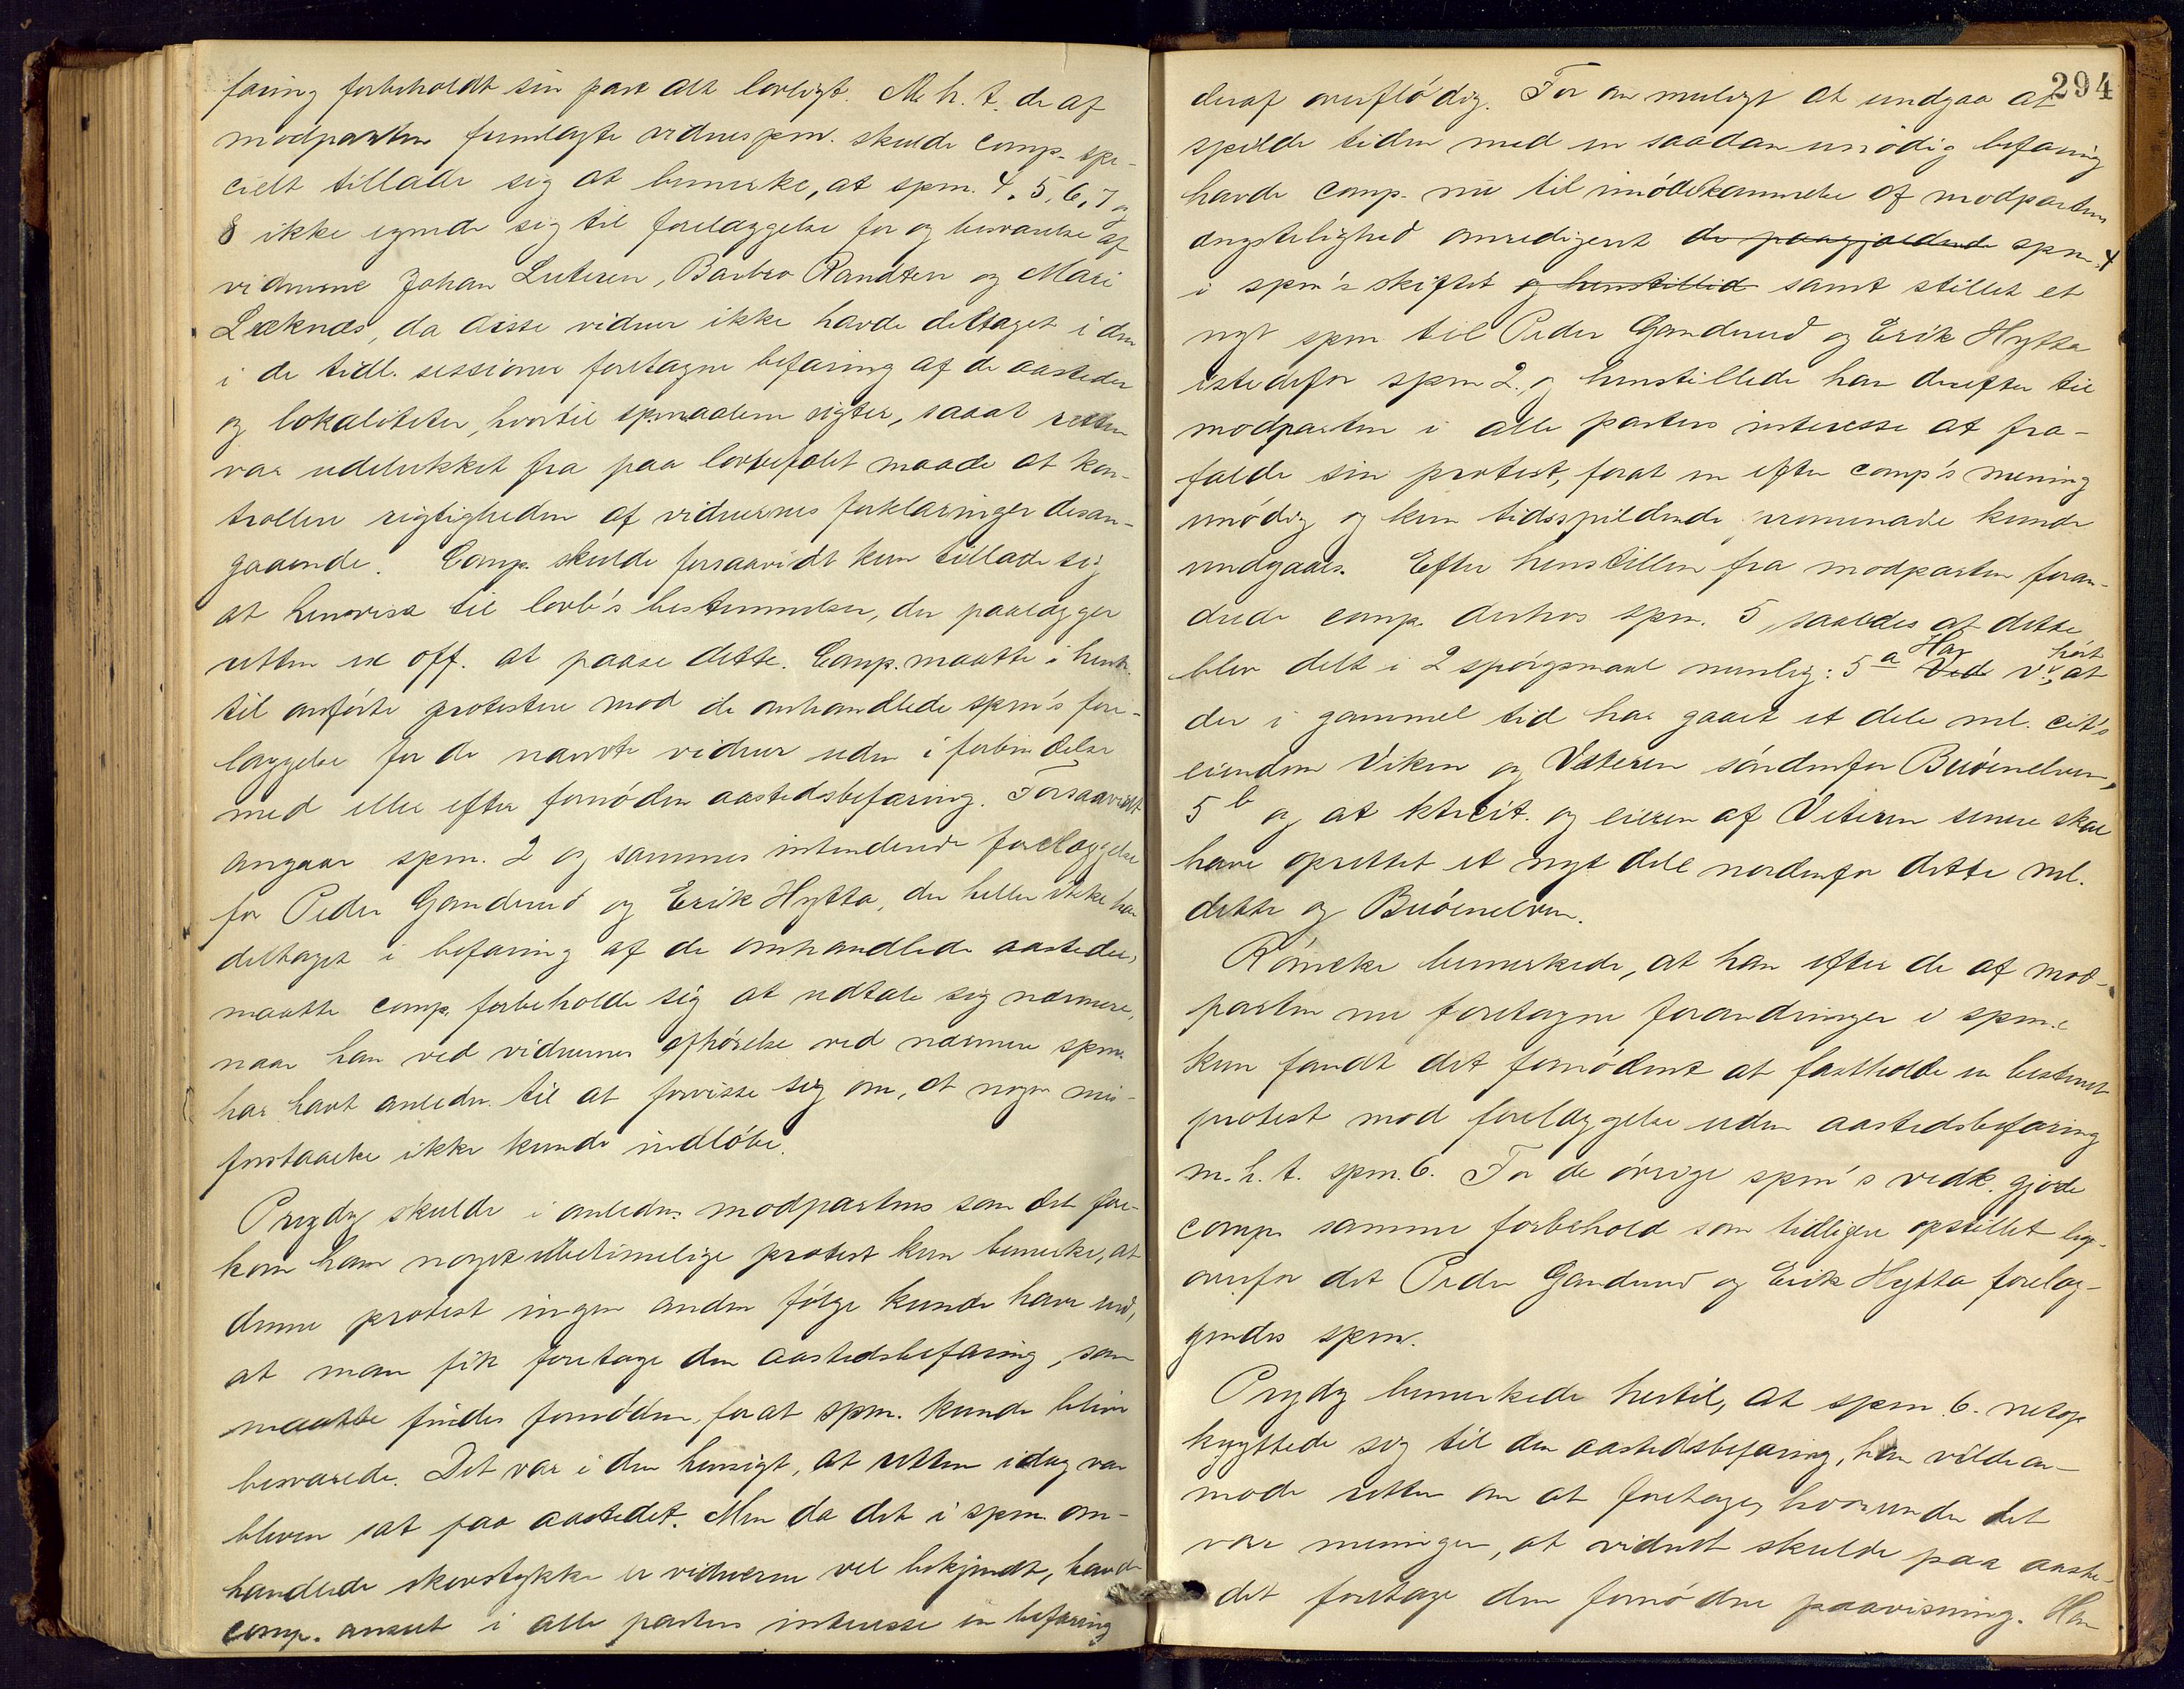 faring forbeholdt sin part alt lovligt. M. h. t. de af
modparten fremlagte vidnespm. skulde comp. spe-
cielt tillade sig at bemerke, at spm. 4, 5, 6, 7 og
8 ikke egnede sig til forelæggelse for og besvarelse af
vidnerne Johan Luteren, Barbro Randten og Mari
Læknæs, da disse vidner ikke havde deltaget i den
i de tidl. sessioner foretagne befaring af de aasteder
og lokaliteter, hvortil spmaalene sigter, saaat retten
var udelukket fra paa lovbefalet maade at kon-
trollere rigtigheden af vidnernes forklaringer desan-
gaaende. Comp. skulde forsaavidt kun tillade sig
at henvise til lovb's bestemmelser, der paalægger
retten ex off. at paase dette. Comp. maatte i henh.
til anførte protestere mod de omhandlede spm's fore-
læggelse for de nævnte vidner uden i forbindelse
med eller efter fornøden aastedsbefaring. Forsaavidt
angaar spm. 2 og sammes intenderede forelæggelse
for Peder Ganderud og Erik Hytta, der heller ikke har
deltaget i befaring af de omhandlede aasteder,
maatte comp. forbeholde sig at udtale sig nærmere,
naar han ved vidnernes afhørelse ved nærmere spm.
har havt anledn. til at forvisse sig om, at nogen mis-
forstaaelse ikke kunde indløbe.
Prydz skulde i anledn. modpartens som det fore-
kom ham noget ubetimelige protest kun bemerke, at
denne protest ingen anden følge kunde have end,
at man fik foretage den aastedsbefaring, som
maatte findes fornøden, forat spm. kunde blive
besvarede. Det var i den hensigt, at retten idag var
bleven sat paa aastedet. Men da det i spm. om-
handlede skovstykke er vidnerne vel bekjendt, havde
comp. anseet i alle parters interesse en befaring
294
deraf overflødig. For om muligt at undgaa at
spilde tiden med en saadan unødig befaring
havde comp. nu til imødekommelse af modpartens
ængstelighed omredigeret de paagjældende spm. 4
i spm's skiftet og henstillid samt stillet et
nyt spm til Peder Ganderud og Erik Hytta
istedefor spm 2, og henstillede han derefter til
modparten i alle parters interesse at fra-
falde sin protest, forat en efter comp's mening
unødig og kun tidsspildende promenade kunde
undgaaes. Efter henstillen fra modparten foran-
drede comp. derhos spm. 5, saaledes at dette
blev delt i 2 spørgsmaal nemlig: 5 a Ved Har v. hørt, at
der i gammel tid har gaaet et dele ml. cit's
eiendom Viken og Veteren søndenfor Buøenelven,
5 b og at ktrcit. og eieren af Veteren senere skal
have oprettet et nyt dele nordenfor dette ml.
dette og Buøenelven.
Rømcke bemerkede, at han efter de af mod-
parten nu foretagne forandringer i spm.e
kun fandt det fornødent at fastholde en bestemt
protest mod forelæggelse uden aastedsbefaring
m. h. t. spm. 6. For de øvrige spm's vedk. gjorde
comp. samme forbehold som tidligere opstillet lige-
overfor det Peder Ganderud og Erik Hytta forelæg-
gendes spm.
Prydz bemerkede hertil, at spm. 6. netop
knyttede sig til den aastedsbefaring, han vilde an-
mode retten om at foretage, hvorunder det
var meningen, at vidnet skulde paa aaste-
det foretage den fornødne paavisning. Han